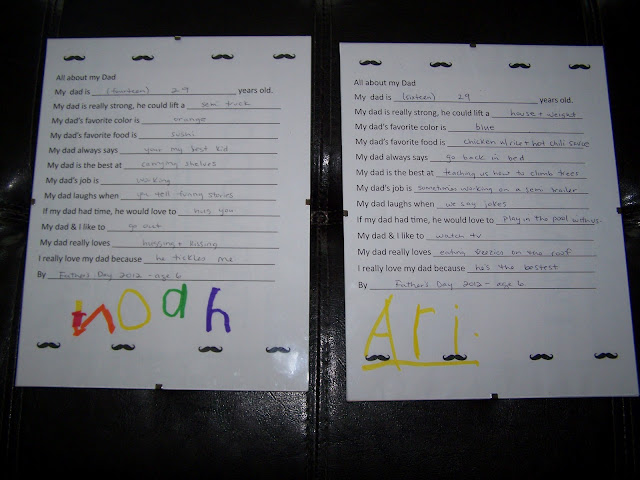 All about my Dad
My dad is (fourteen) 29 years old.
My dad is really strong, he could lift a semi truck
My dad's favorite color is orange
My dad's favorite food is sushi
My dad always says your my best kid
My dad is the best at carrying shelves
My dad's job is working
My dad laughs when you tell funny stories
If my dad had time, he would love to hug you
My dad & I like to go out
My dad really loves hugging + kissing
I really love my dad because he tickles me
By Father's Day 2012 - age 6
Noah
All about my Dad
My dad is (sixteen) 29 years old.
My dad is really strong, he could lift a house + weight
My dad's favorite color is blue
My dad's favorite food is chicken w/rice + hot chili sauce
My dad always says go back in bed
My dad is the best at teaching us how to climb trees
My dad's job is sometimes working on a semi trailer
My dad laughs when we say jokes
If my dad had time, he would love to play in the pool w/guys
My dad & I like to watch tv
My dad really loves eating on the roof
I really love my dad because he's the bestest
By Father's Day 2012 - age 6
Ari